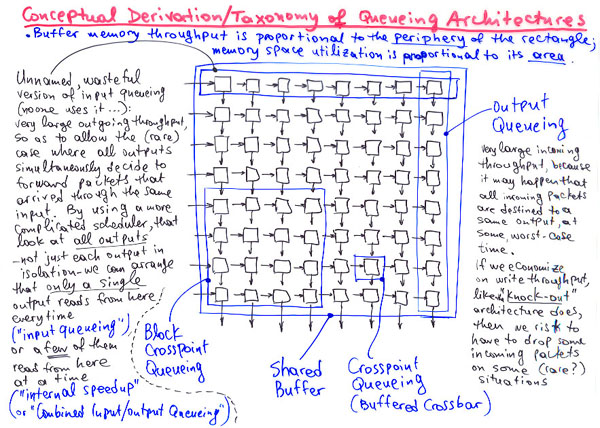 Conceptual Derivation/Taxonomy of Queueing Architectures
• Buffer memory throughput is proportional to the periphery of the rectangle;
memory space utilization is proportional to its area.
Unnamed, wasteful
version of input queueing
(noone uses it...):
very large outgoing throughput,
so as to allow the (rare)
case where all outputs
simultaneously decide to
forward packets that
arrived through the same
input. By using a more
complicated scheduler, that
look at all outputs
-not just each output in
isolation- we can arrange
that only a single
output reads from here
everytime
("input queueing")
or a few of them
read from here
at a time
("internal speedup"
(or "Combined Input/output Queueing")
Block
Crosspoint
Queueing
Shared
Buffer
Crosspoint
Queueing
(Buffered Crossbar)
Output
Queueing
very large incoming
throughput, because
it may happen that
all incoming packets
are destined to a
same output, at
some, worst-case
time.
if we economize
on write throughput,
like "knock-out"
architecture does,
then we risk to
have to drop some
incoming packets
on some (rare?)
situations